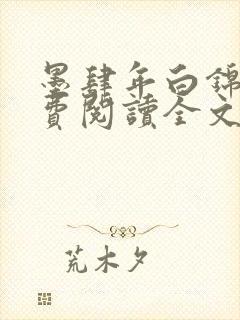 墨肆年白錦
費閱讀全文
荒木夕